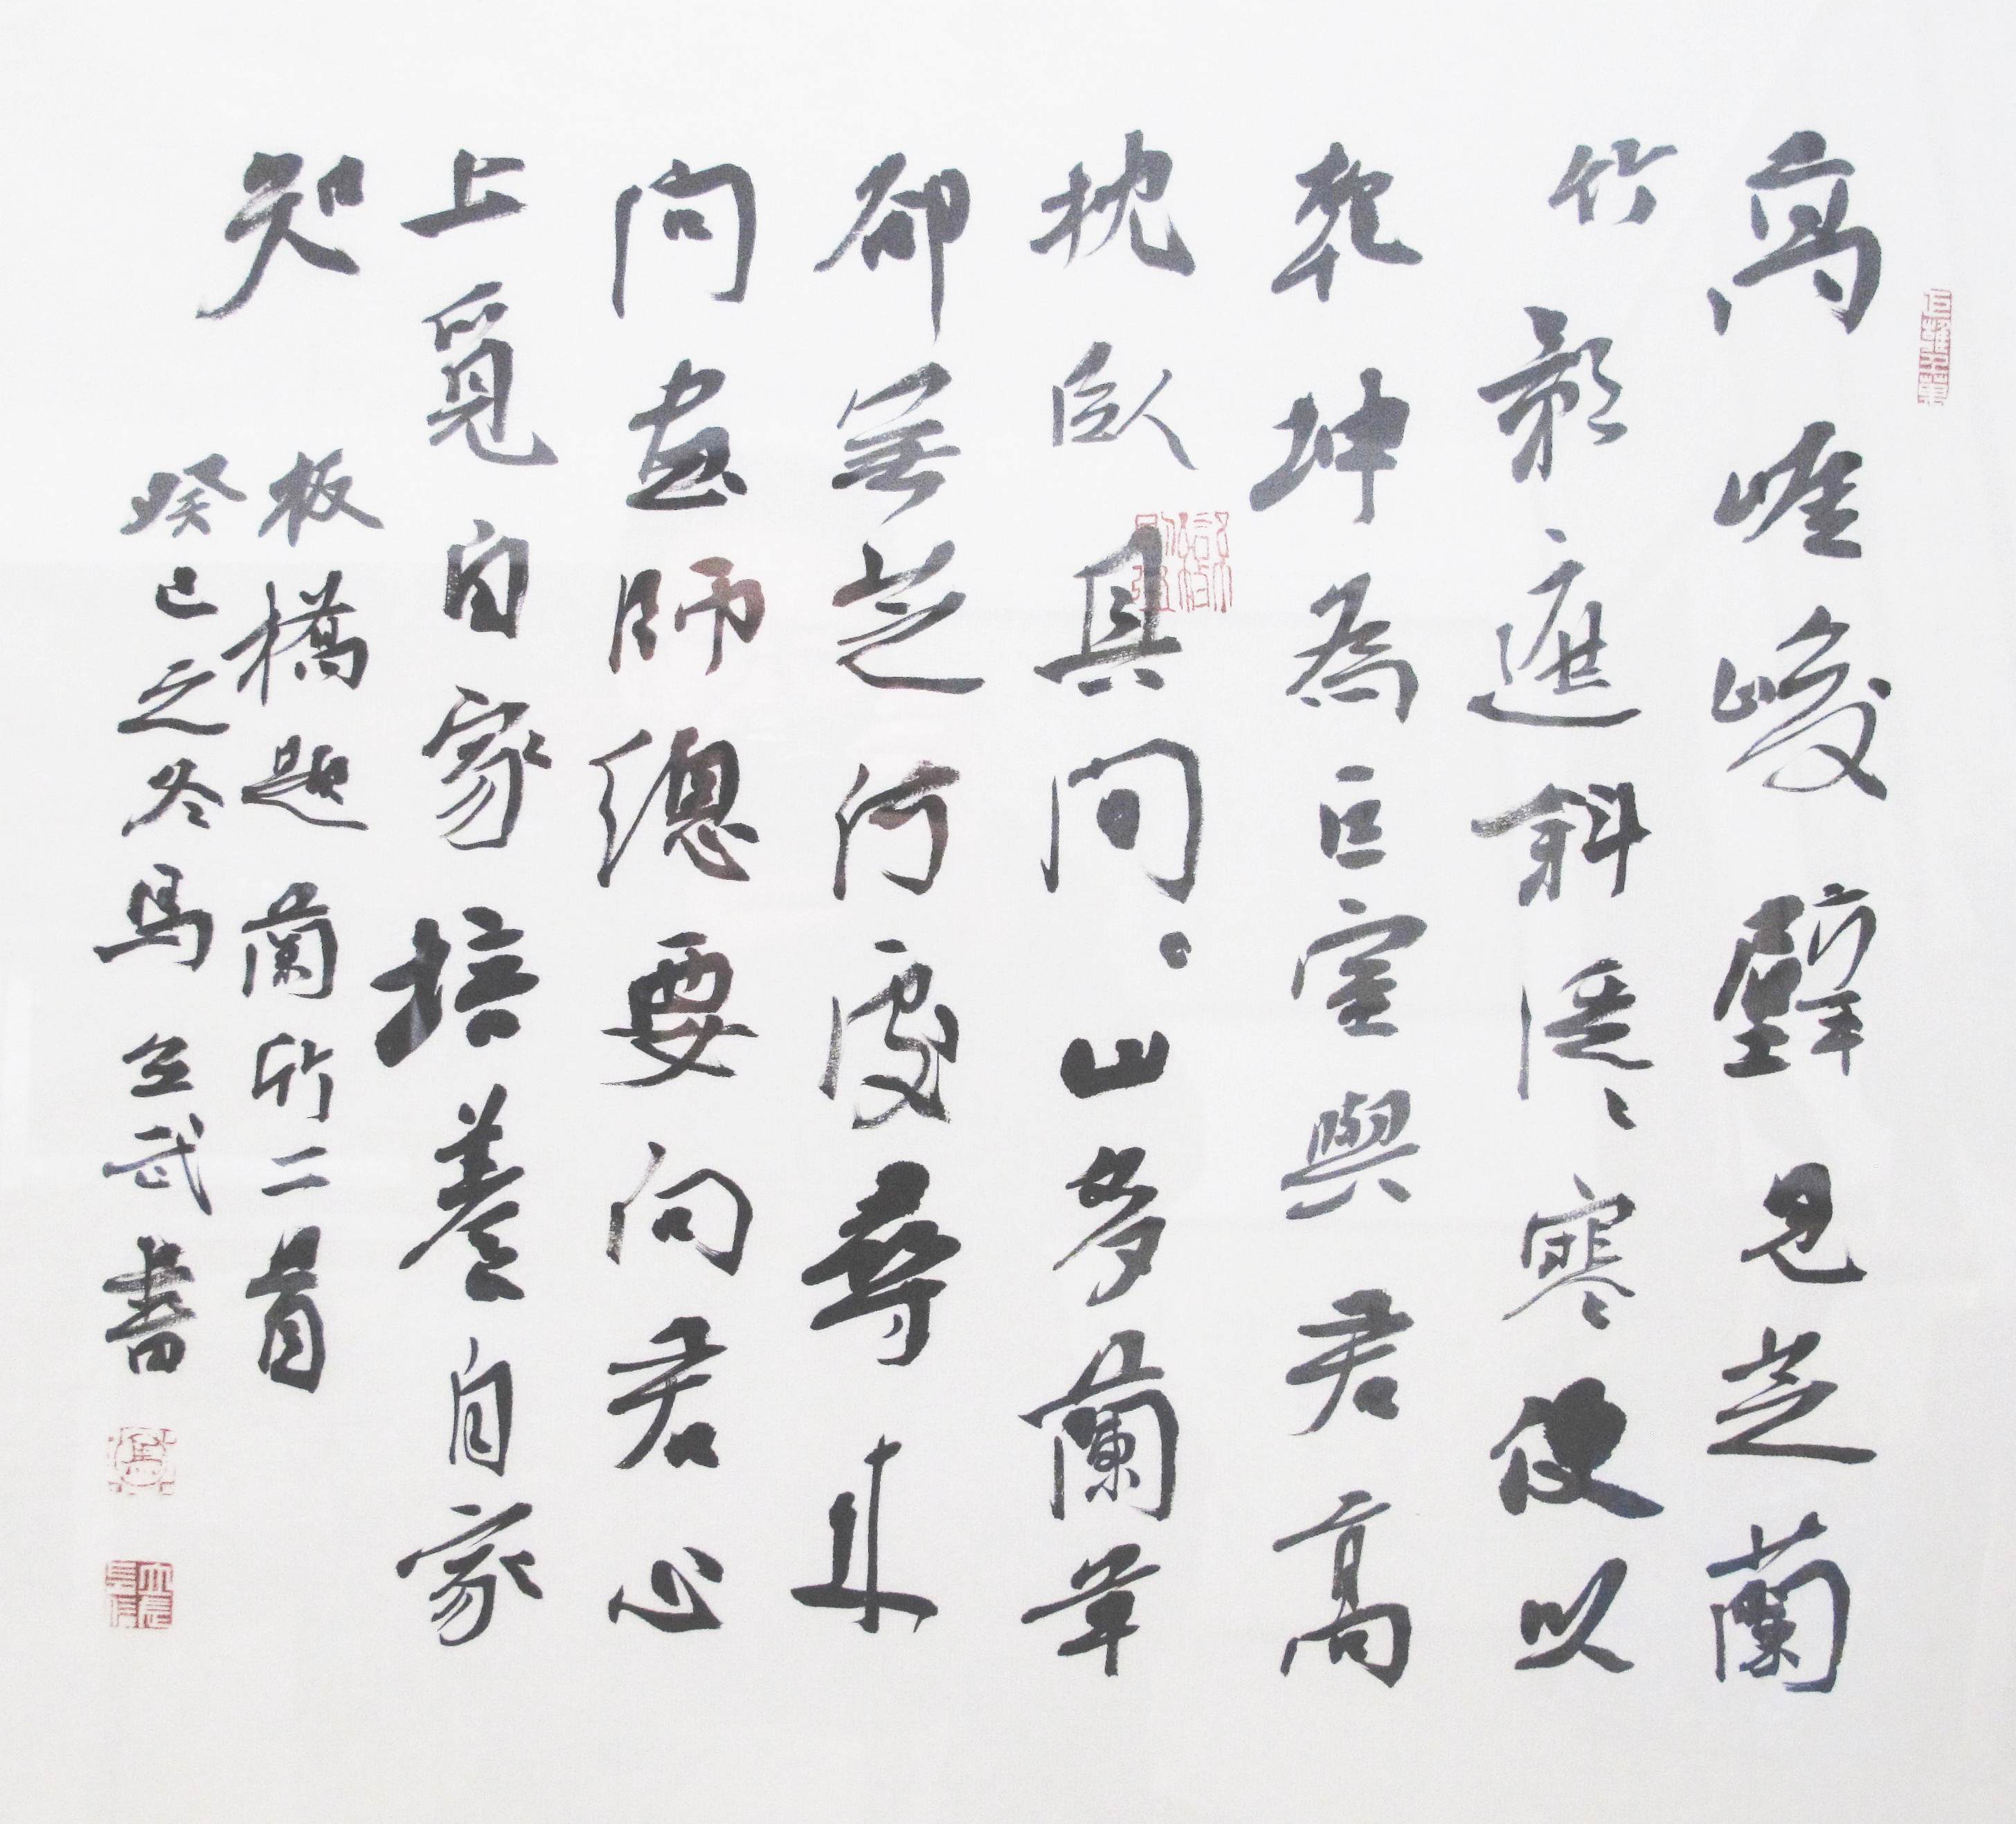 高崖峻壁見芝蘭
竹影遮斜淫淫寒便以
乾坤為巨室與君高
枕臥其間。山多蘭草
卻無芝何處尋來
問畫師總要向君心
上覓自家培養自家
知
板橋題蘭竹二首
癸巳之冬馬立武書